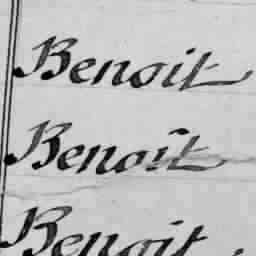 Benoit
Benoît
Benoit